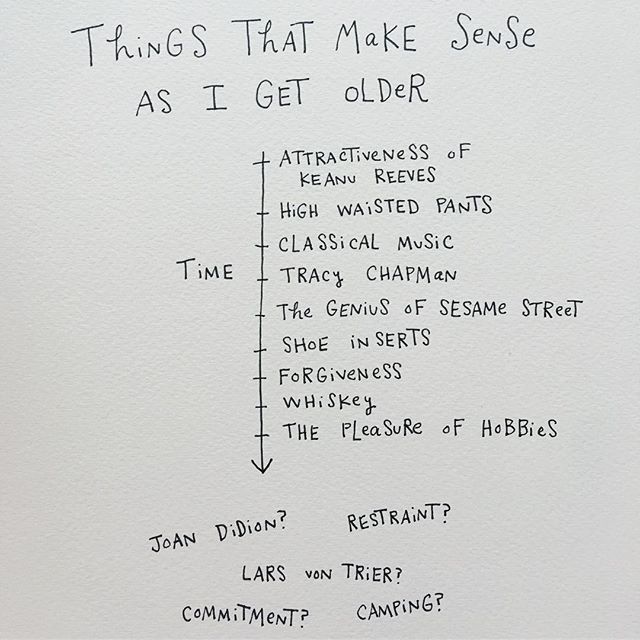 THINGS THAT MAKE SENSE
AS I GET OLDER
ATTRACTIVENESS OF
KEANU REEVES
HIGH WAISTED PANTS
CLASSICAL MUSIC
TIME
TRACY CHAPMAN
THE GENIUS OF SESAME STREET
SHOE INSERTS
FORGIVENESS
WHISKEY
THE PLEASURE OF HOBBIES
JOAN DIDION?
RESTRAINT?
LARS VON TRIER?
COMMITMENT?
CAMPING?